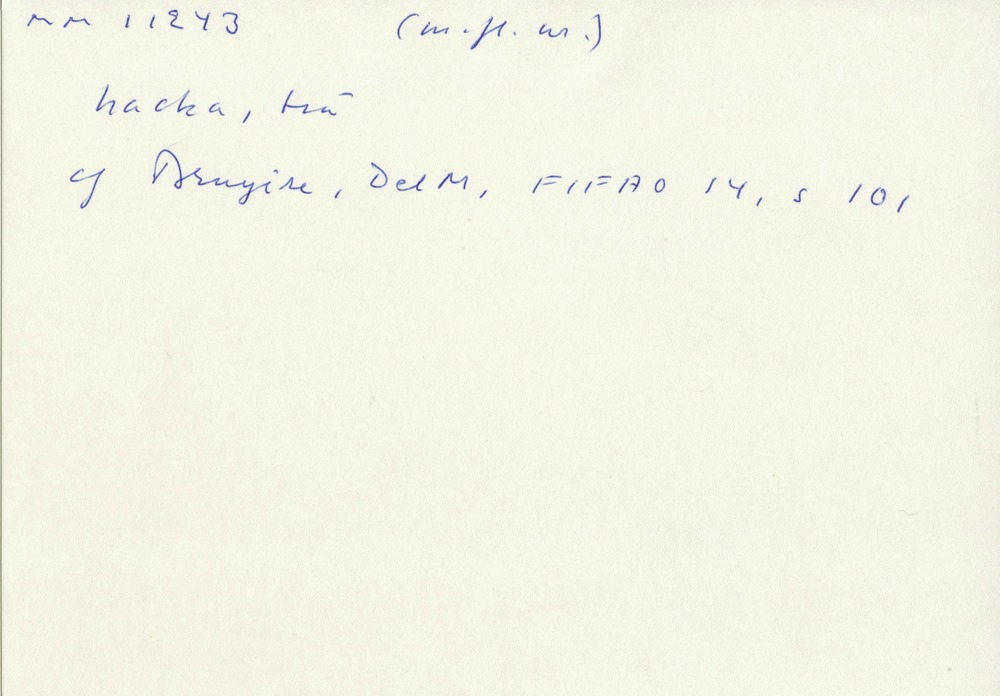 MM 11243 (m.fl. nr.)
hacka, trä
cf Bruyère, DelM, FIFAO 14, s 101